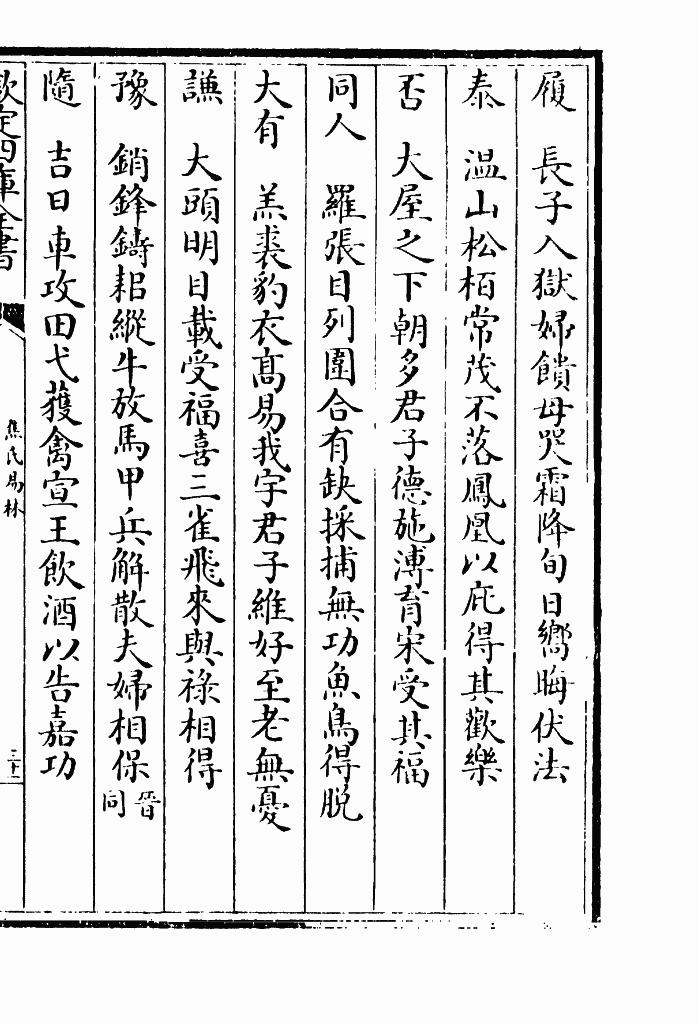 履　長子入獄婦饋母哭霜降旬日嚮晦伏法
泰　温山松栢常茂不落鳳凰以庇得其歡樂
否　大屋之下朝多君子德施溥育宋受其福
同人　羅張目列圍合有缺採捕無功魚鳥得脱
大有　羔裘豹衣高易我宇君子維好至老無憂
謙　大頭明目載受福喜三雀飛來與祿相得
豫　銷鋒鑄耜縱牛放馬甲兵解散夫婦相保晉同
隨　吉日車攻田弋獲禽宣王飲酒以告嘉功
欽定四庫全書
焦氏易林
三十一